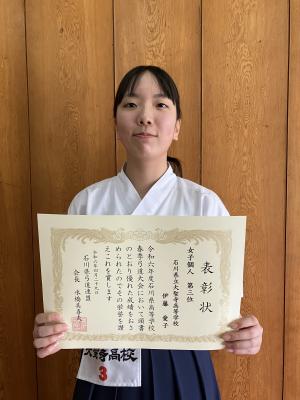 表彰状
女子個人 第三位
石川県立大聖寺高等学校
伊藤 愛子
令和六年度石川県高等学校
春季弓道大会において頭書
のとおり優れた成績をおさ
められたのでその栄誉を讃
えこれを賞します
令和六年四月二十九日
石川県弓道連盟
会長
聖寺高校
3